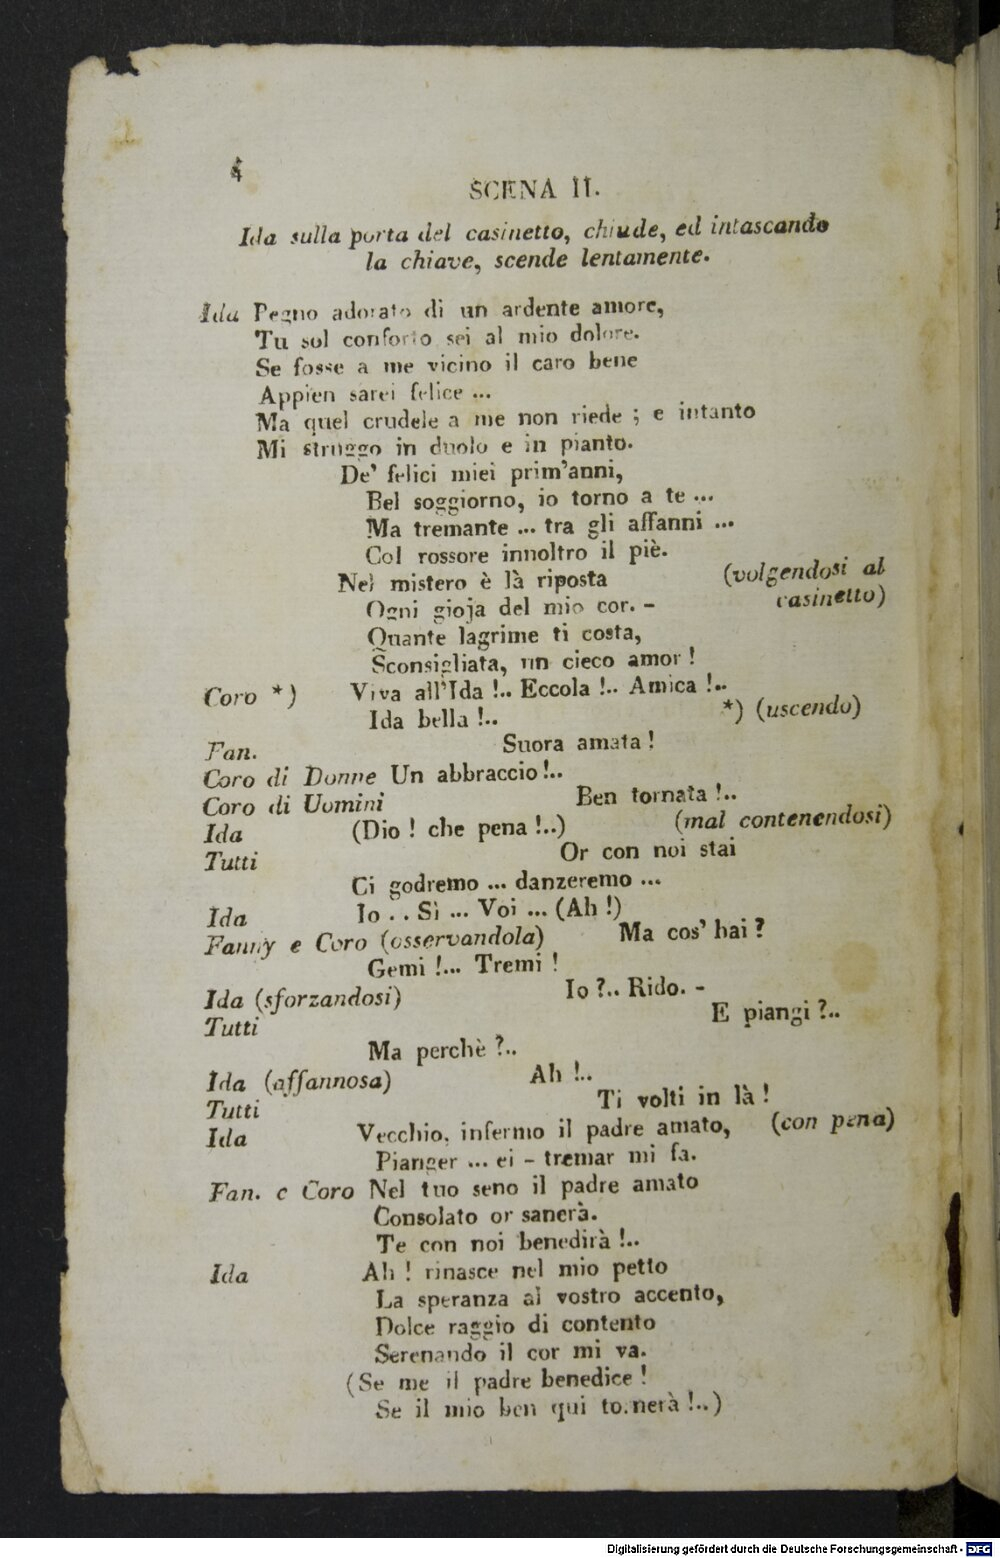 4
SCENA II.
Ida sulla porta del casinetto, chiude, ed intascando
la chiave, scende lentamente.
Ida Pegno adorato di un ardente amore,
Tu sol conforto sei al mio dolore.
Se fosse a me vicino il caro bene
Appien sarei felice ...
Ma quel crudele a me non riede ; e intanto
Mi struggo in duolo e in pianto.
De' felici miei prim'anni,
Bel soggiorno, io torno a te ...
Ma tremante ... tra gli affanni ...
Col rossore innoltro il piè.
Nel mistero è là riposta (volgendosi al
Ogni gioja del mio cor. - casinetto)
Quante lagrime ti costa,
Sconsigliata, un cieco amor !
Coro *) Viva all'Ida !.. Eccola !.. Amica !..
Ida bella !.. *) (uscendo)
Fan. Suora amata !
Coro di Donne Un abbraccio !..
Coro di Uomini Ben tornata !..
Ida (Dio ! che pena !..) (mal contenendosi)
Tutti Or con noi stai
Ci godremo ... danzeremo ...
Ida Io . . Sì ... Voi ... (Ah !)
Fanny e Coro (osservandola) Ma cos' hai ?
Gemi !... Tremi !
Ida (sforzandosi) Io ?.. Rido. -
Tutti E piangi ?..
Ma perchè ?..
Ida (affannosa) Ah !..
Tutti Ti volti in là !
Ida Vecchio, infermo il padre amato, (con pena)
Pianger ... ei - tremar mi fa.
Fan. e Coro Nel tuo seno il padre amato
Consolato or sanerà.
Te con noi benedirà !..
Ida Ah ! rinasce nel mio petto
La speranza al vostro accento,
Dolce raggio di contento
Serenando il cor mi va.
(Se me il padre benedice !
Se il mio ben qui tornerà !..)
Digitalisierung gefördert durch die Deutsche Forschungsgemeinschaft - DFG